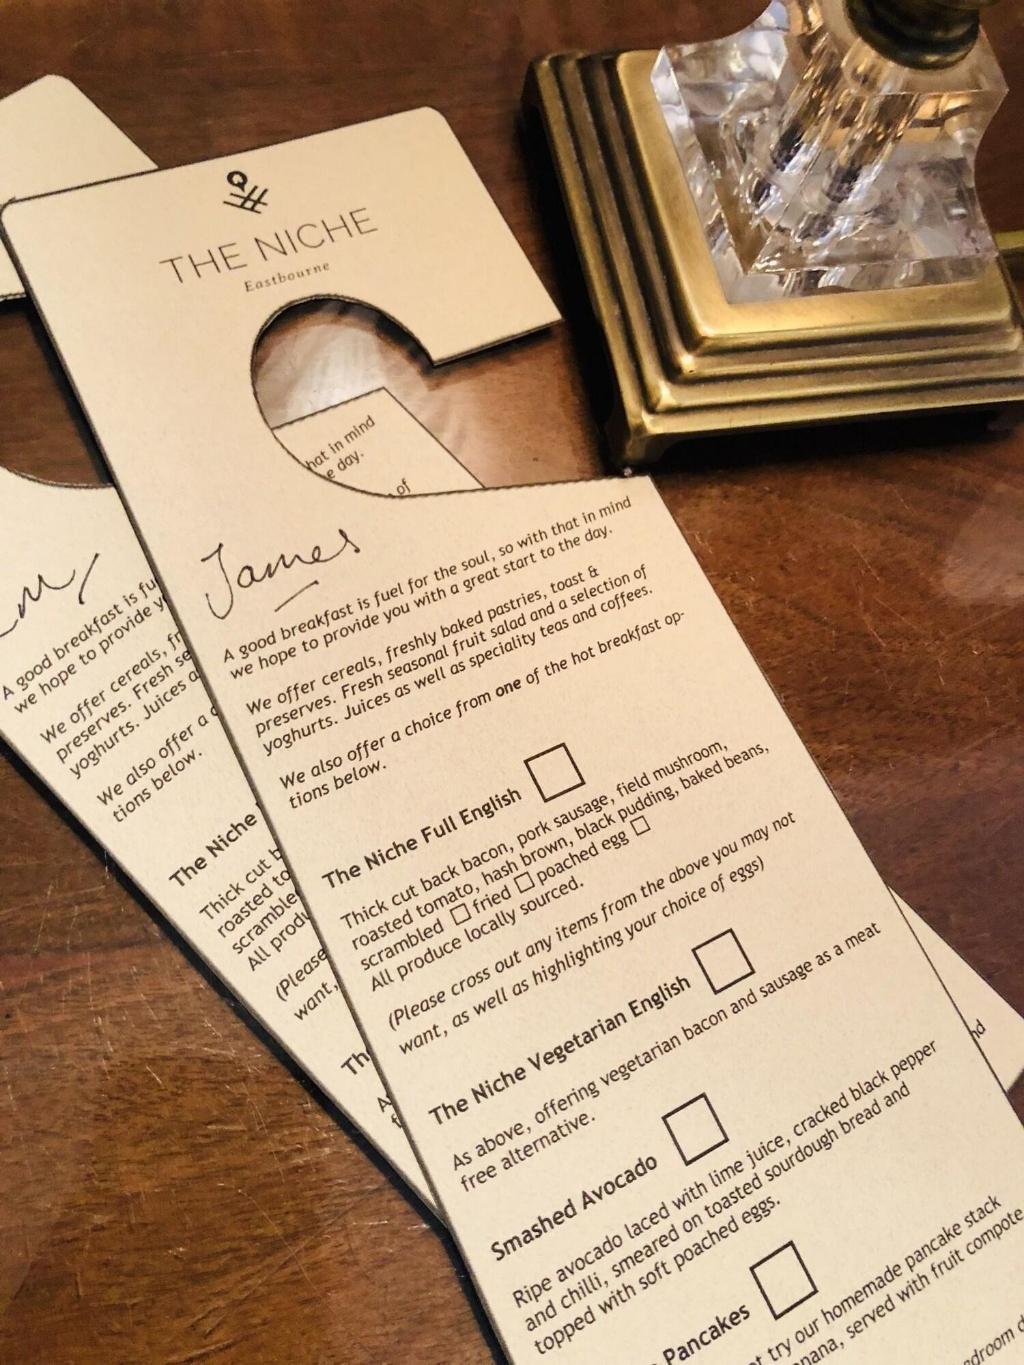 THE NICHE
Eastbourne
hat in mind
e day.
of
James
A good breakfast is fuel for the soul, so with that in mind
we hope to provide you with a great start to the day.
We offer cereals, freshly baked pastries, toast &
preserves. Fresh seasonal fruit salad and a selection of
yoghurts. Juices as well as speciality teas and coffees.
We also offer a choice from one of the hot breakfast op-
tions below.
The Niche Full English
Thick cut back bacon, pork sausage, field mushroom,
roasted tomato, hash brown, black pudding, baked beans,
scrambled fried poached egg
All produce locally sourced.
(Please cross out any items from the above you may not
want, as well as highlighting your choice of eggs)
The Niche Vegetarian English
As above, offering vegetarian bacon and sausage as a meat
free alternative.
Smashed Avocado
Ripe avocado laced with lime juice, cracked black pepper
and chilli, smeared on toasted sourdough bread and
topped with soft poached eggs.
Pancakes
try our homemade pancake stack
nana, served with fruit compote
A good breakfast is fu
we hope to provide y
We offer cereals, fr
preserves. Fresh se
yoghurts. Juices a
We also offer a c
tions below.
The Niche
Thick cut b
roasted to
scramble
All produ
(Please
want,
Th
A
f
nd